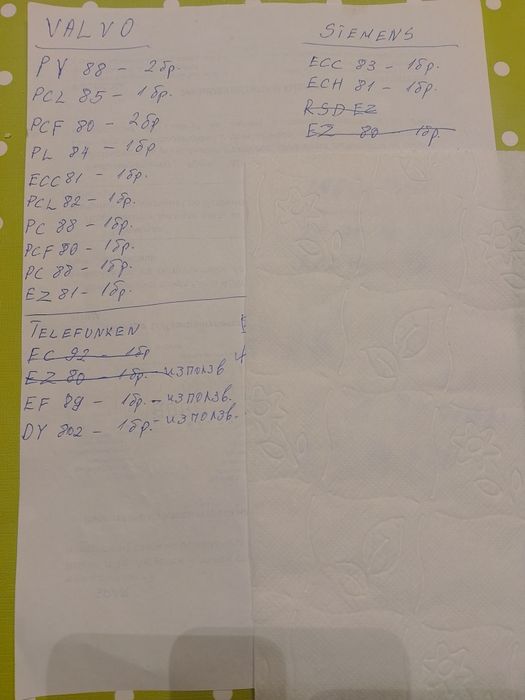 VALVO
PY 88 - 2бр.
PCL 85 - 1бр.
PCF 80 - 2бр
PL 84 - 1бр
ECC 81 - 1бр.
PCL 82 - 1бр.
PC 88 - 1бр.
PCF 80 - 1бр.
PC 88 - 1бр.
EZ 81 - 1бр.
TELEFUNKEN
EC 92 - 1бр
EZ 80 - 1бр. - използв
EF 89 - 1бр. - използв.
DY 802 - 1бр. - използв.
SIEMENS
ECC 83 - 1бр.
ECH 81 - 1бр.
RSD EZ
EZ 80 1бр.